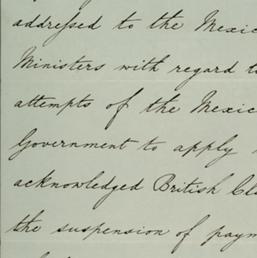 addressed to the Mexic
Ministers with regard t
attempts of the Mexic
Government to apply
acknowledged British Cl
the suspension of paym